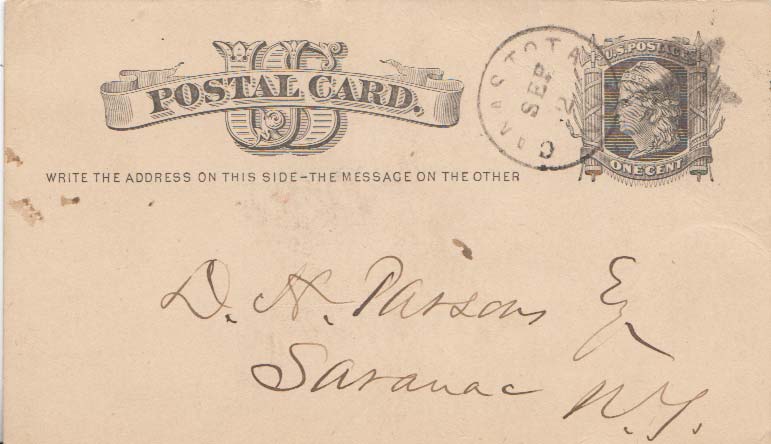 US
POSTAL CARD.
CANASTOTA
SEP
2
U.S. POSTAGE
ONE CENT
WRITE THE ADDRESS ON THIS SIDE–THE MESSAGE ON THE OTHER
D. H. Parsons Esq
Saranac N.Y.